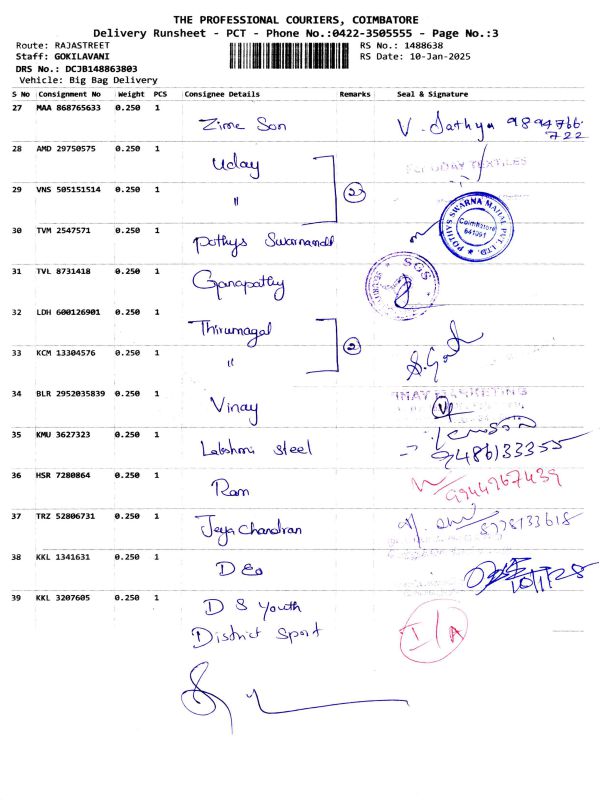 THE PROFESSIONAL COURIERS, COIMBATORE
Delivery Runsheet - PCT - Phone No.:0422-3505555 - Page No.:3
Route: RAJASTREET RS No.: 1488638
Staff: GOKILAVANI RS Date: 10-Jan-2025
DRS No.: DCJB148863803
Vehicle: Big Bag Delivery
S No Consignment No Weight PCS Consignee Details Remarks Seal & Signature
27 MAA 868765633 0.250 1 Zime Son V. Sathya 9894766
722
28 AMD 29750575 0.250 1 Uday For UDAY TEXTILES
29 VNS 505151514 0.250 1 " 2
30 TVM 2547571 0.250 1 Pothys Swarnamahl POTHYS SWARNA MAHAL PVT. LTD. Coimbatore 641001
31 TVL 8731418 0.250 1 Ganapathy SGS
32 LDH 600126901 0.250 1 Thirumagal
33 KCM 13304576 0.250 1 " 2
34 BLR 2952035839 0.250 1 Vinay
35 KMU 3627323 0.250 1 Lakshmi Steel 9486133355
36 HSR 7280864 0.250 1 Ram 9944767439
37 TRZ 52806731 0.250 1 Jeya Chandran 8778133618
38 KKL 1341631 0.250 1 D Eo 10/1/25
39 KKL 3207605 0.250 1 D S Youth
District Sport I/A